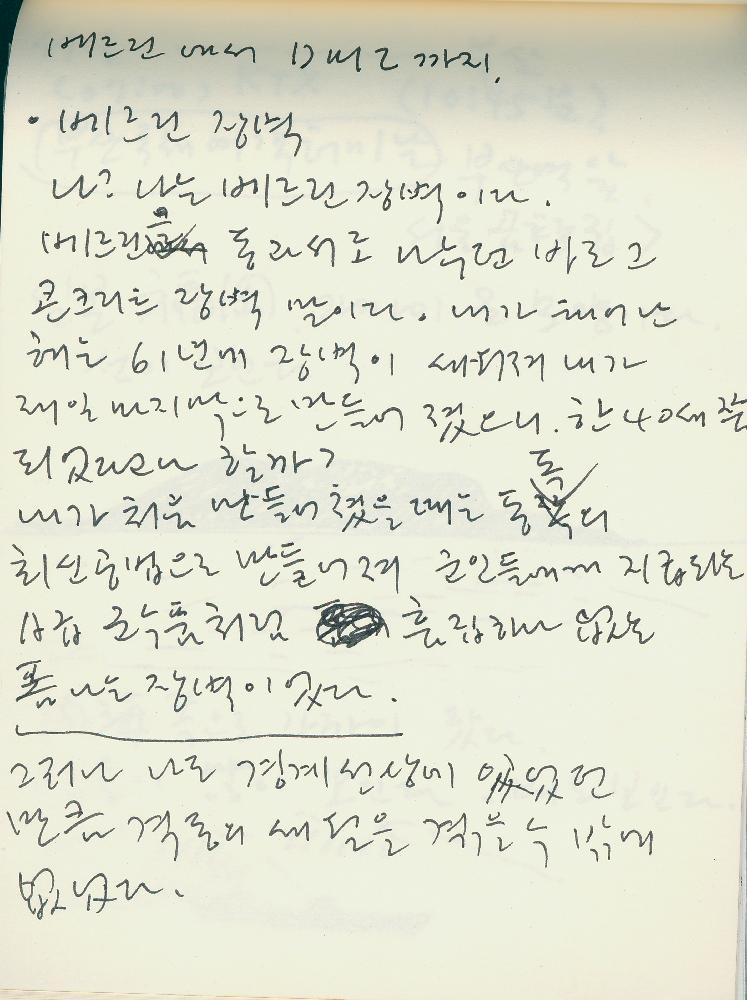 베르린 에서 DMZ 까지.
· 베르린 장벽
나? 나는 베르린 장벽이다.
베르린을 동과서로 나눴던 바로 그
콘크리트 장벽 말이다. 내가 태어난
해는 61년에 장벽이 세워져 내가
제일 마지막으로 만들어 졌으니. 한 40세 쯤
되었다고나 할까?
내가 처음 만들어 졌을 때는 동독의
최신공법으로 만들어져 군인들에게 지급되는
A급 군수품처럼 흠집하나 없는
폼나는 장벽이었다.
그러나 나도 경계선상에 있었던
만큼 격동의 세월을 겪을 수 밖에
없었다.